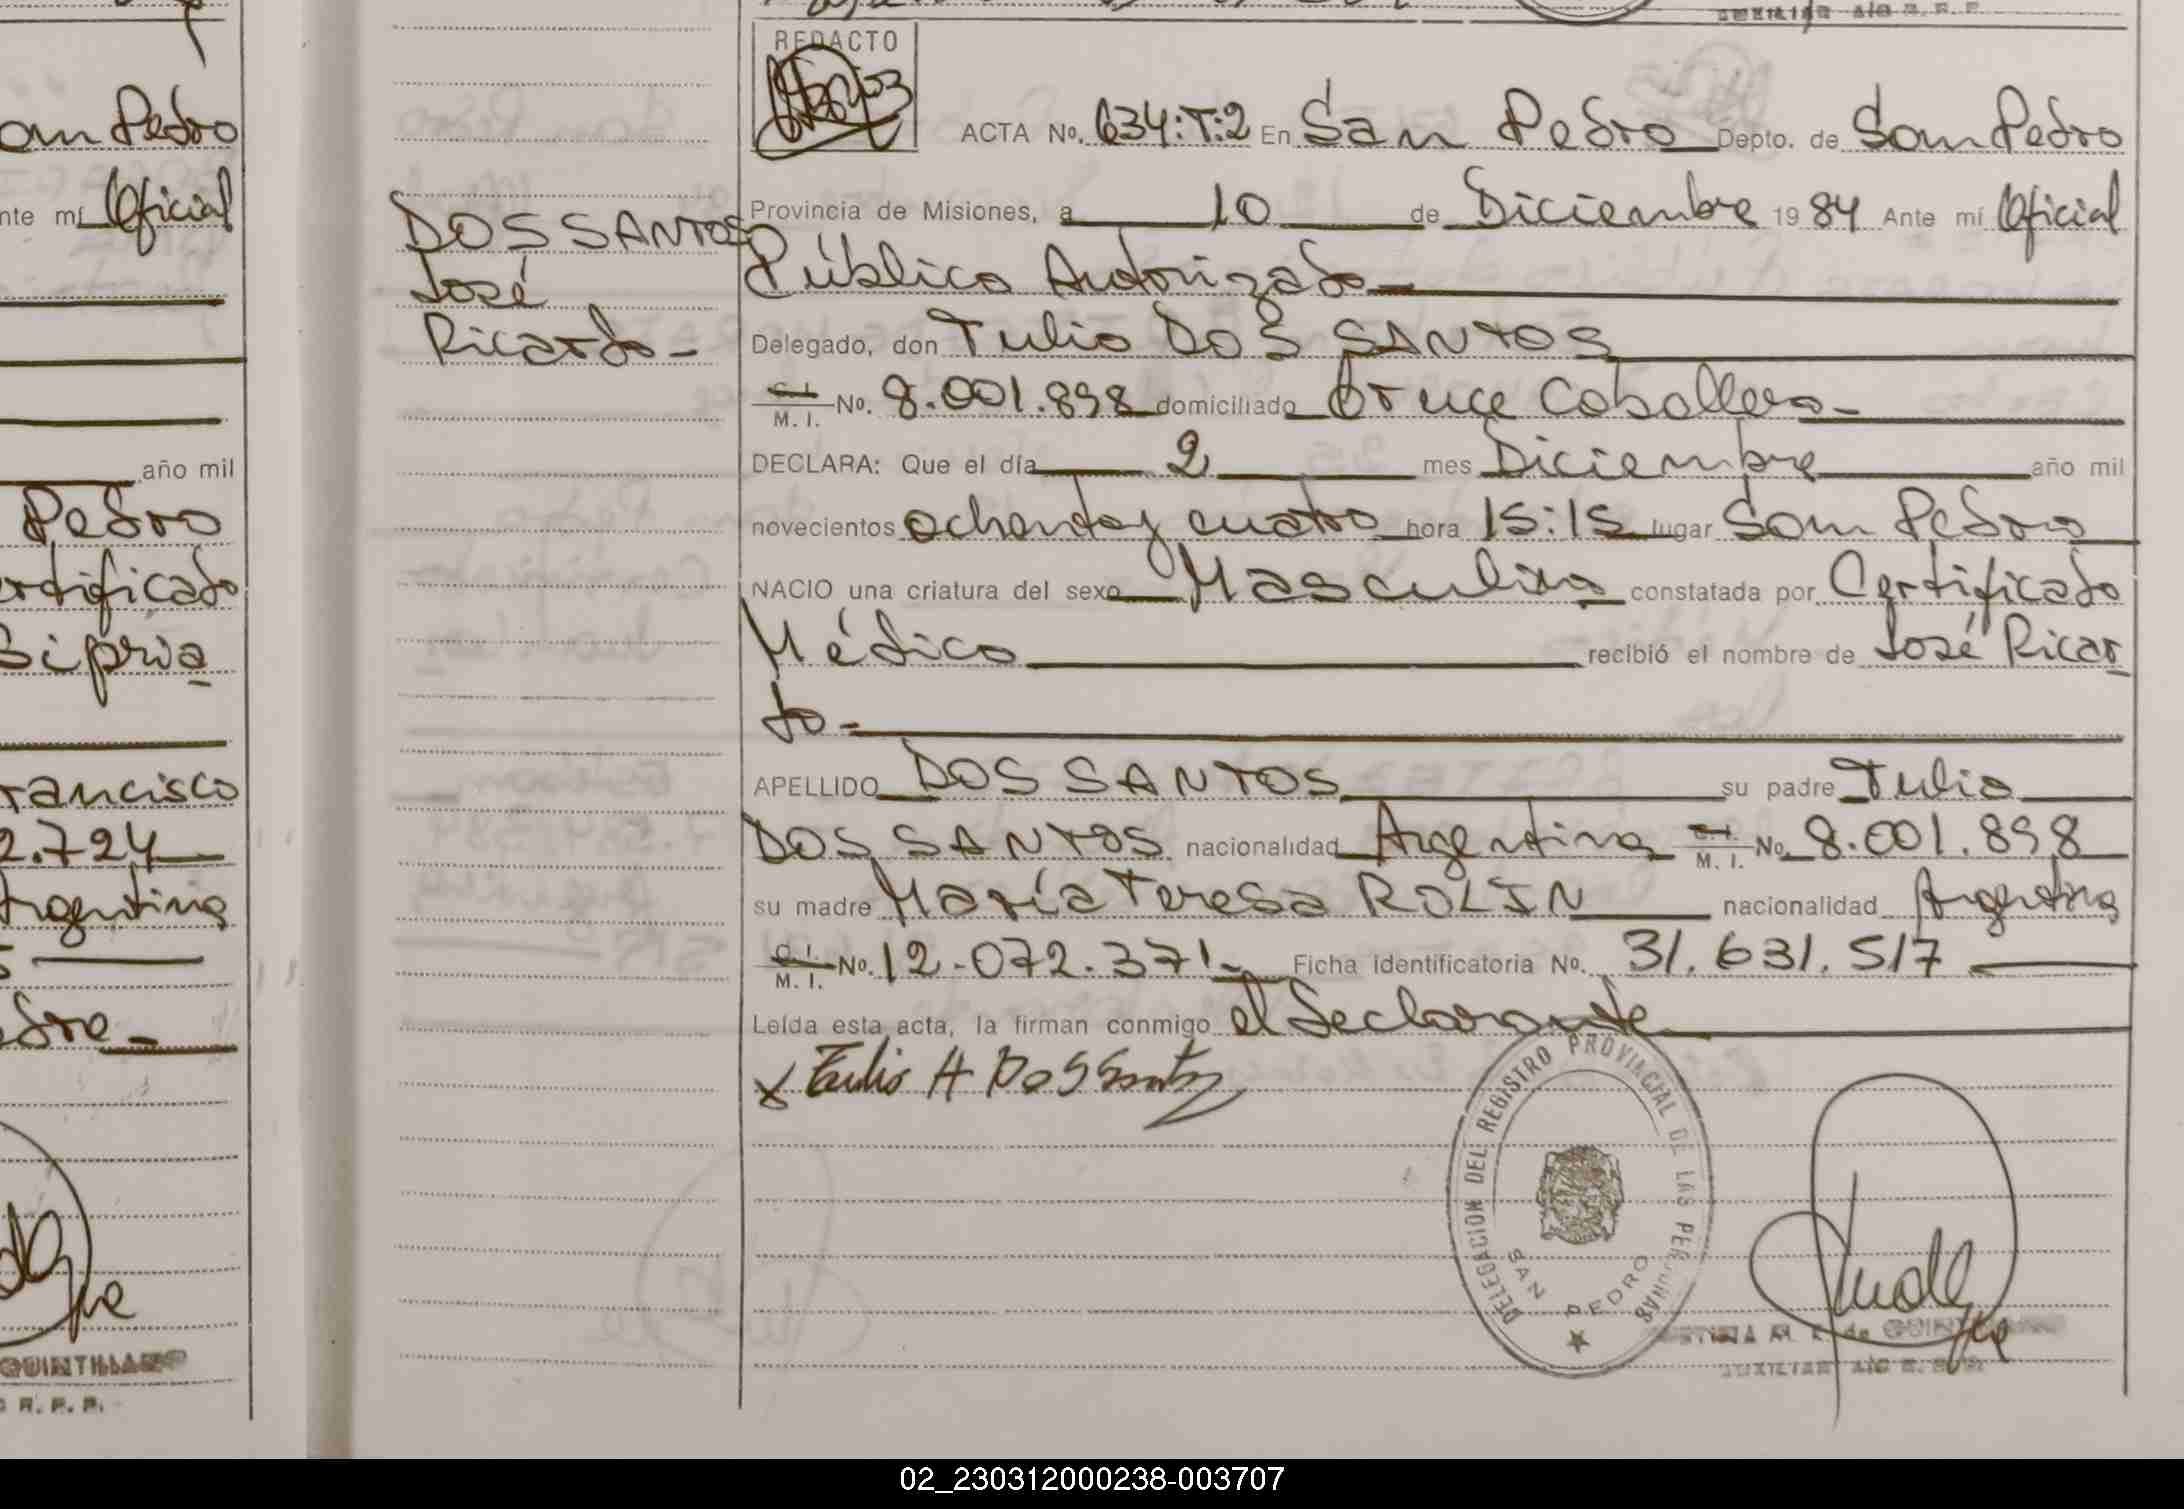 om Pedro
nte mí Oficial
año mil
Pedro
rtificado
Bipria
rancisco
2.724
Argentina
dre-
QUINTILIANO
R. P. P.
DOS SANTOS
José
Ricardo-
AUXILIAR A/C R. P. P.
REDACTO
ACTA No. 634:T:2 En San Pedro Depto. de San Pedro
Provincia de Misiones, a 10 de Diciembre 1984 Ante mí Oficial
Público Autorizado
Delegado, don Tulio DOS SANTOS
C. I. M. I. No. 8.001.898 domiciliado Cruce Caballero-
DECLARA: Que el día 2 mes Diciembre año mil
novecientos ochenta y cuatro hora 15:15 lugar San Pedro
NACIO una criatura del sexo Masculino constatada por Certificado
Médico recibió el nombre de José Ricar
do-
APELLIDO DOS SANTOS su padre Tulio
DOS SANTOS nacionalidad Argentina C. I. M. I. No. 8.001.898
su madre María Teresa ROLIN nacionalidad Argentina
C. I. M. I. No. 12.072.371- Ficha Identificatoria No. 31.631.517
Leída esta acta, la firman conmigo el declarante
x Tulio A Dos Santos
DELEGACION DEL REGISTRO PROVINCIAL DE LAS PERSONAS
SAN PEDRO
de QUINTILIANO
AUXILIAR A/C R. P. P.
02_230312000238-003707